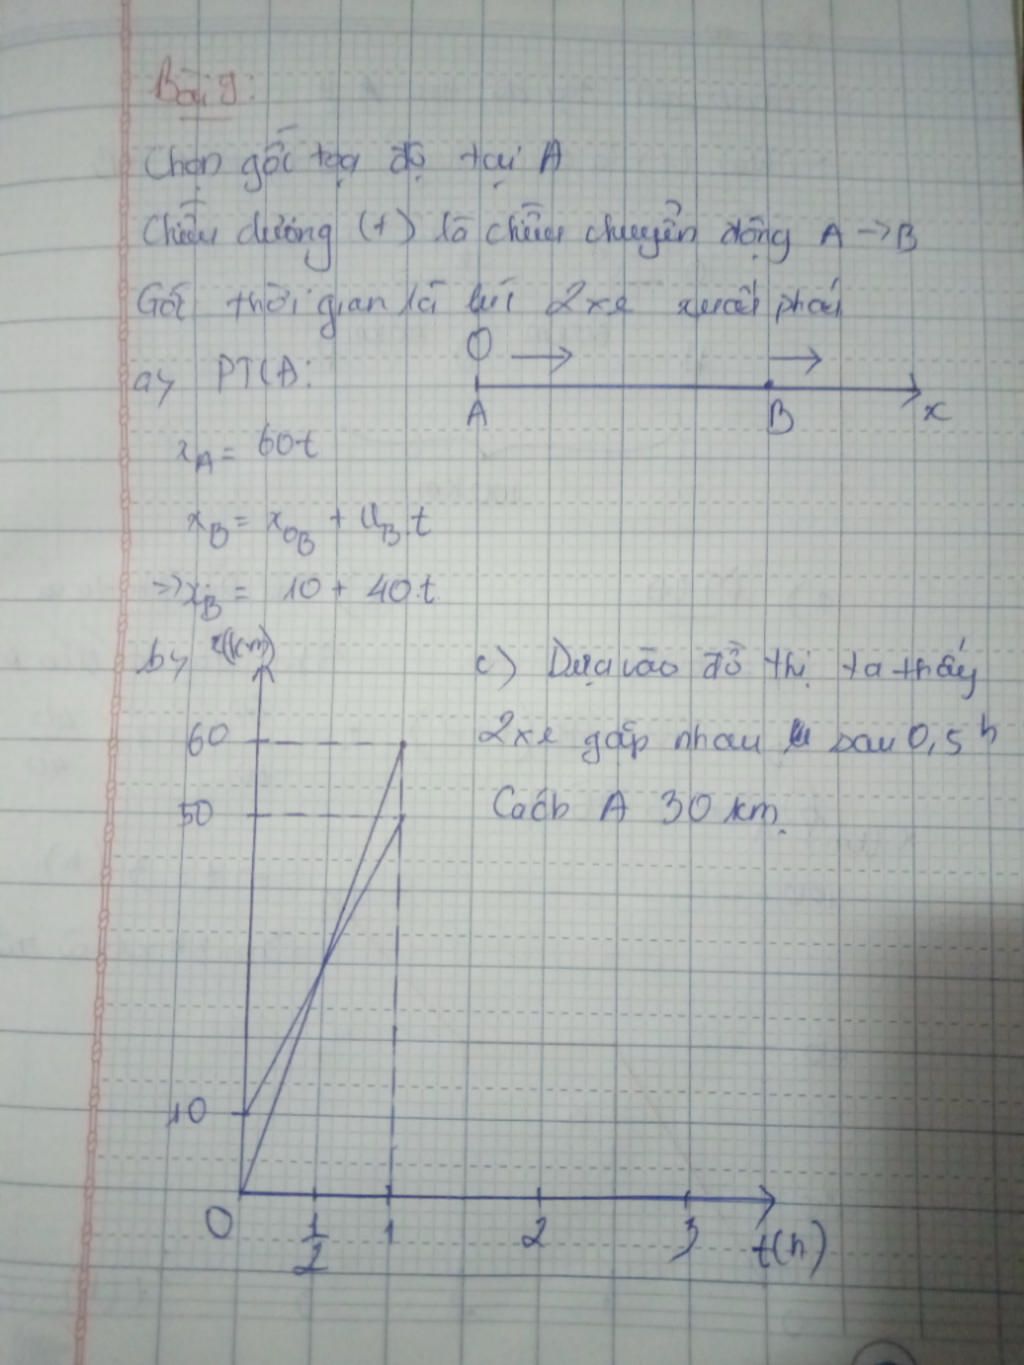 Bài 9:
Chọn gốc tọa độ tại A
Chiều dương (+) là chiều chuyển động A → B
Gốc thời gian là lúc 2 xe xuất phát
O
a, PTCĐ:
A
B
x
x_A = 60t
x_B = x_0B + v_B.t
=> x_B = 10 + 40.t
b, x(km)
60
50
10
O
1/2
1
2
3
t(h)
c) Dựa vào đồ thị ta thấy
2 xe gặp nhau sau 0,5h
Cách A 30 km.